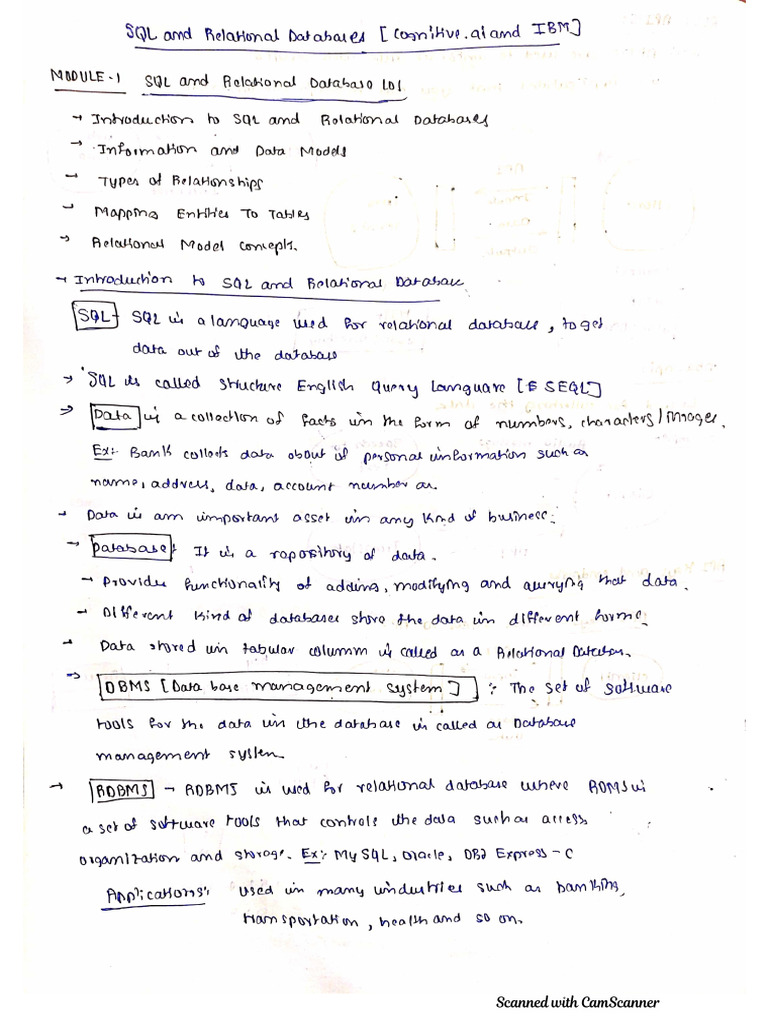 SQL and Relational Databases [Cognitive.ai and IBM]
MODULE-1 SQL and Relational Database 101
→ Introduction to SQL and Relational Databases
→ Information and Data Models
→ Types of Relationships
→ Mapping Entities To Tables
→ Relational Model concepts.
→ Introduction to SQL and Relational Database
SQL → SQL is a language used for relational database, to get
data out of the database
→ SQL is called Structure English Query Language [SEQL]
⇒ Data is a collection of facts in the form of numbers, characters/Images.
Ex:- Bank collects data about it personal information such as
name, address, data, account number as
→ Data is am important asset in any kind of business.
→ Database: It is a repository of data.
→ Provides functionality of adding, modifying and querying that data.
→ Different kind of databases store the data in different forms.
→ Data stored in tabular columm is called as a Relational Database.
→ DBMS [Data base management system] : The set of software
tools for the data in the database is called as Database
management system.
→ RDBMS → RDBMS is used for relational database where RDMS is
a set of software tools that controls the data such as access
organization and storage. Ex:- MySQL, Oracle, DB2 Express-C
Applications: Used in many industries such as banking,
transportation, health and so on.
Scanned with CamScanner